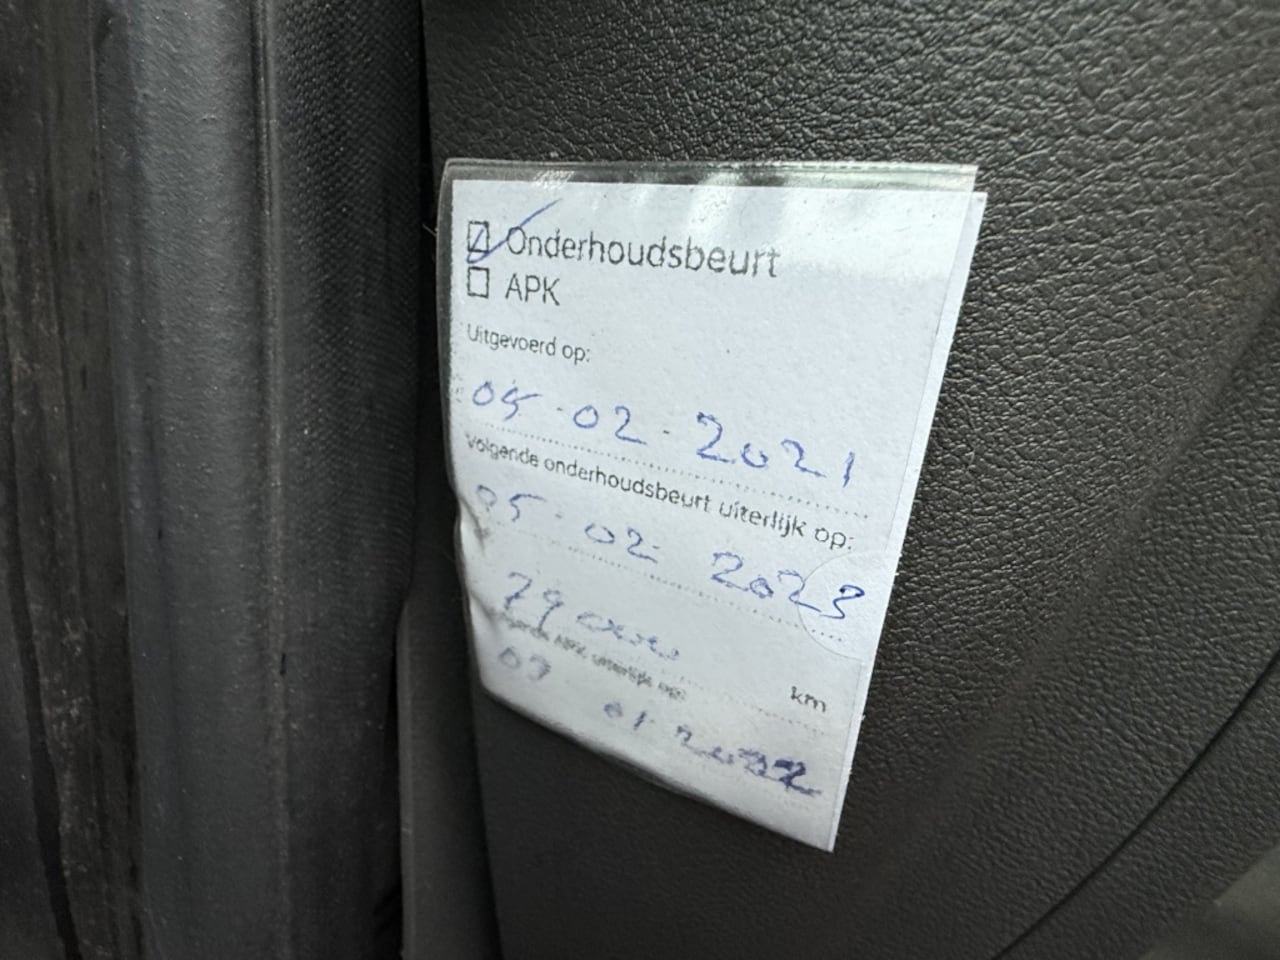 Onderhoudsbeurt
APK
Uitgevoerd op:
05-02-2021
Volgende onderhoudsbeurt uiterlijk op:
05-02-2023
79000 km
APK uiterlijk op:
01 2022